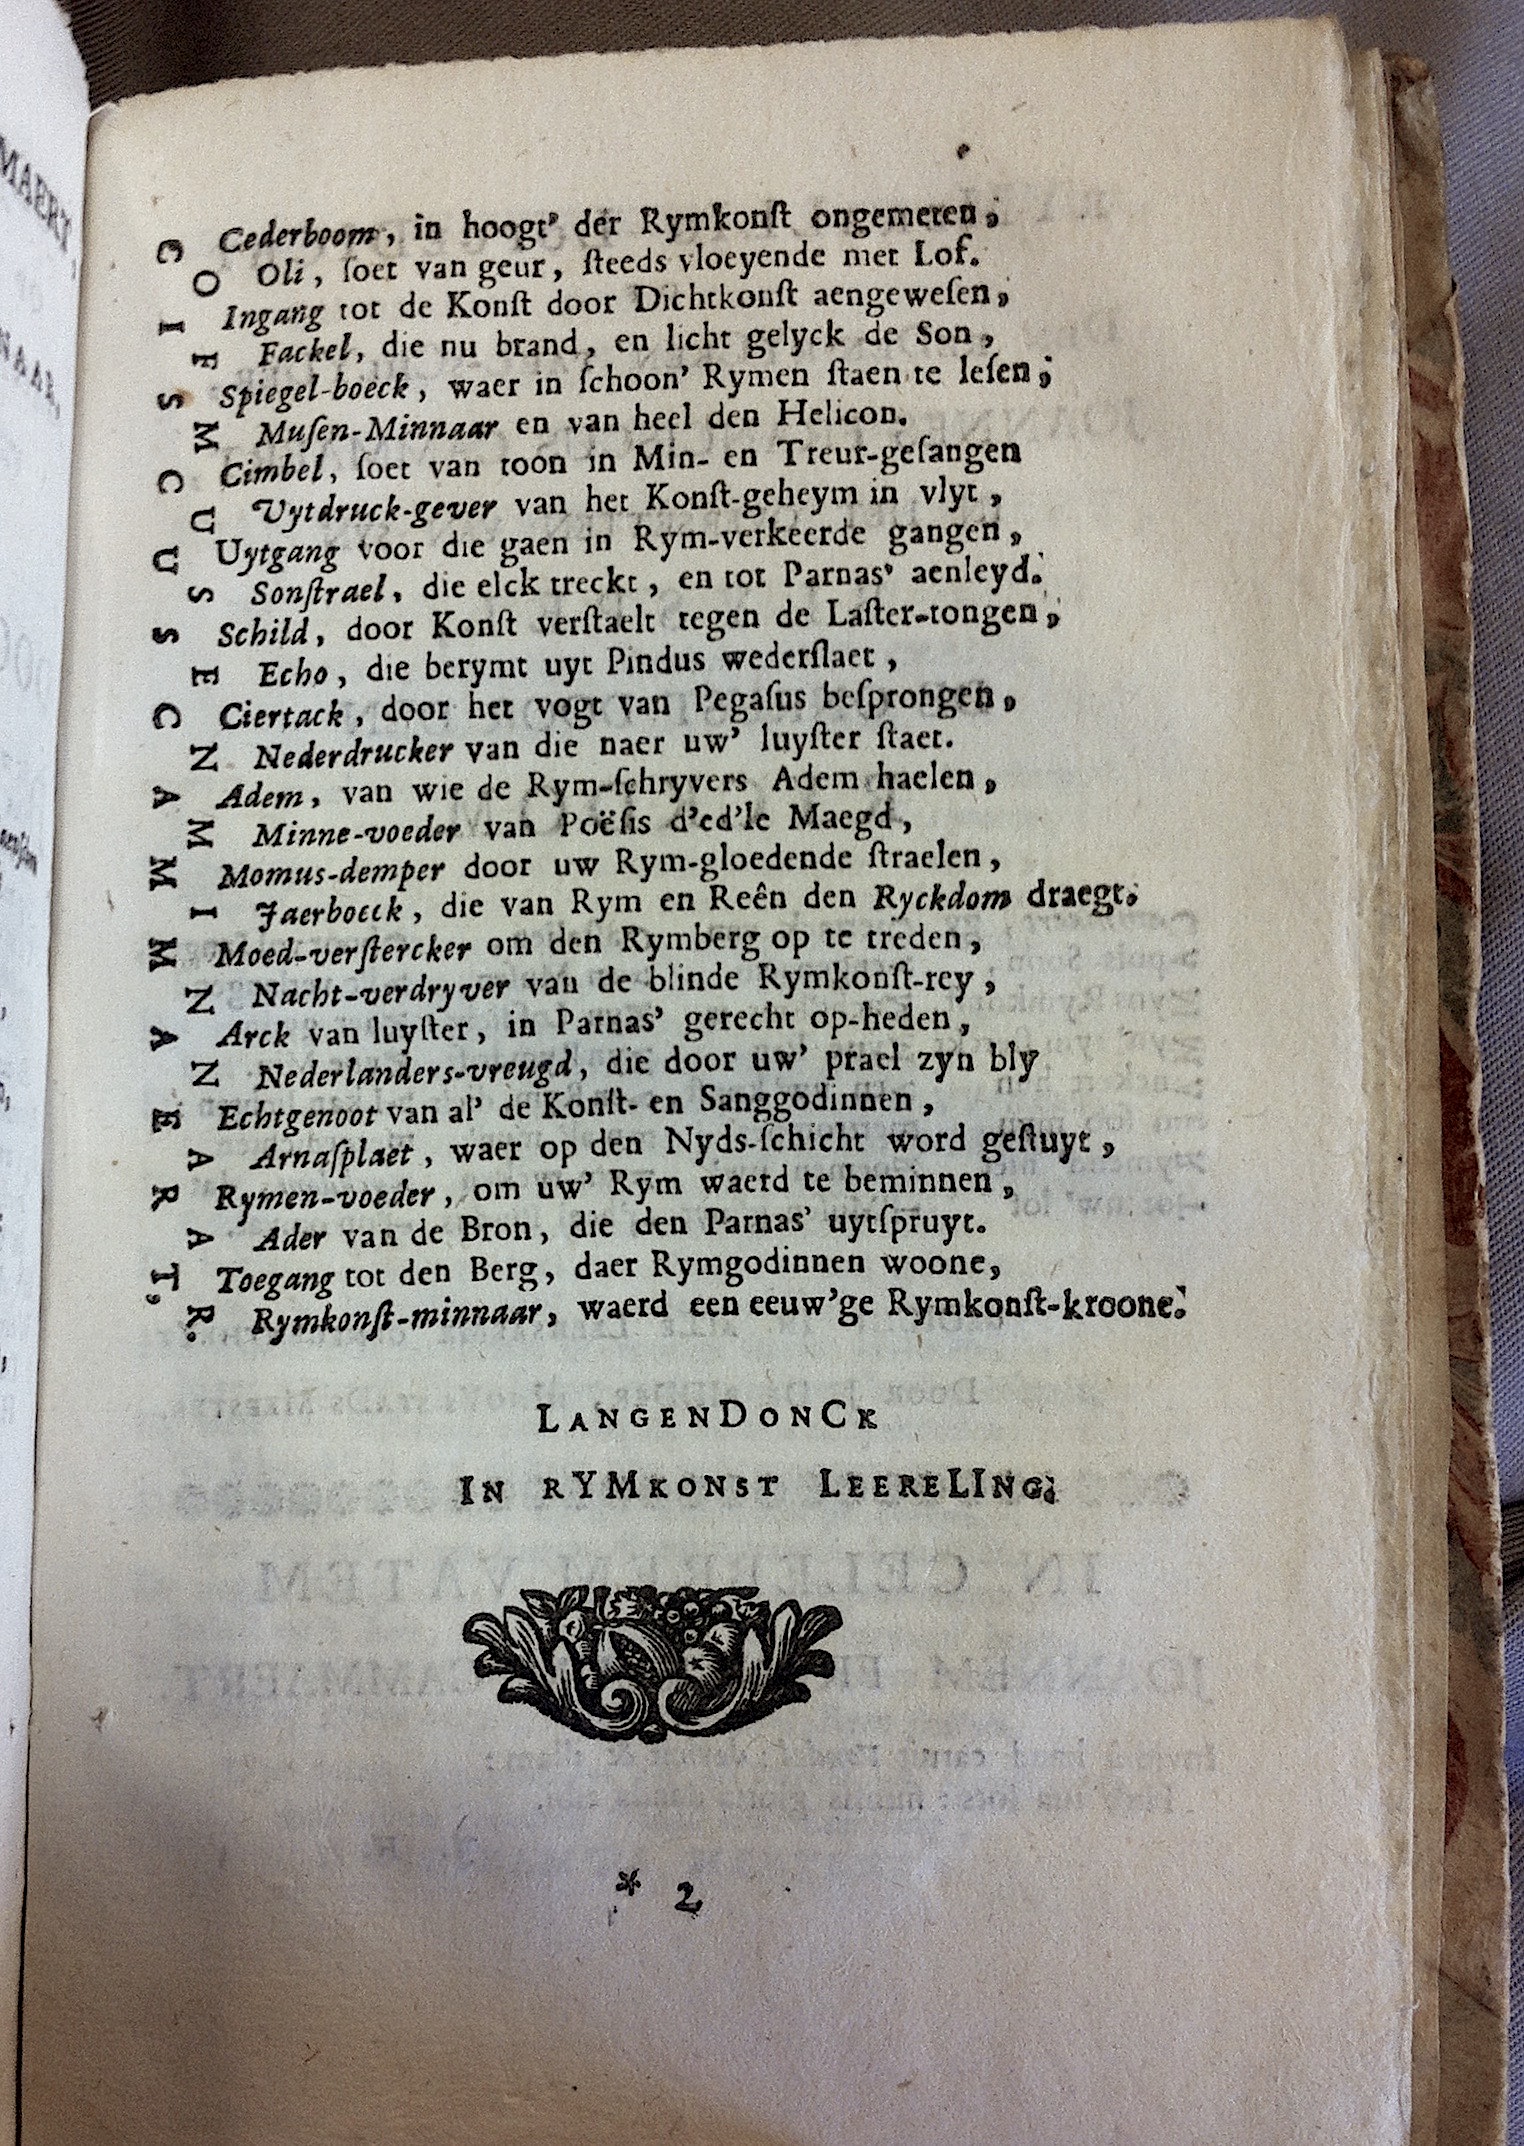 C Cederboom, in hoogt' der Rymkonſt ongemeten,
O Oli, ſoet van geur, ſteeds vloeyende met Lof.
I Ingang tot de Konſt door Dichtkonſt aengeweſen,
F Fackel, die nu brand, en licht gelyck de Son,
S Spiegel-boeck, waer in ſchoon' Rymen ſtaen te leſen;
M Muſen-Minnaar en van heel den Helicon.
C Cimbel, ſoet van toon in Min- en Treur-geſangen
U Uytdruck-gever van het Konſt-geheym in vlyt,
U Uytgang voor die gaen in Rym-verkeerde gangen,
S Sonſtrael, die elck treckt, en tot Parnas' aenleyd.
S Schild, door Konſt verſtaelt tegen de Laſter-tongen,
E Echo, die berymt uyt Pindus wederſlaet,
C Ciertack, door het vogt van Pegaſus beſprongen,
N Nederdrucker van die naer uw' luyſter ſtaet.
A Adem, van wie de Rym-ſchryvers Adem haelen,
M Minne-voeder van Poëſis d'ed'le Maegd,
M Momus-demper door uw Rym-gloedende ſtraelen,
I Jaerboeck, die van Rym en Reên den Ryckdom draegt.
M Moed-verſtercker om den Rymberg op te treden,
N Nacht-verdryver van de blinde Rymkonſt-rey,
A Arck van luyſter, in Parnas' gerecht op-heden,
N Nederlanders-vreugd, die door uw' prael zyn bly
E Echtgenoot van al' de Konſt- en Sanggodinnen,
A Arnaſplaet, waer op den Nyds-ſchicht word geſtuyt,
R Rymen-voeder, om uw' Rym waerd te beminnen,
A Ader van de Bron, die den Parnas' uytſpruyt.
T, Toegang tot den Berg, daer Rymgodinnen woone,
R. Rymkonſt-minnaar, waerd een eeuw'ge Rymkonſt-kroone.
LANGENDONCK
IN RYMKONST LEERELING.
* 2